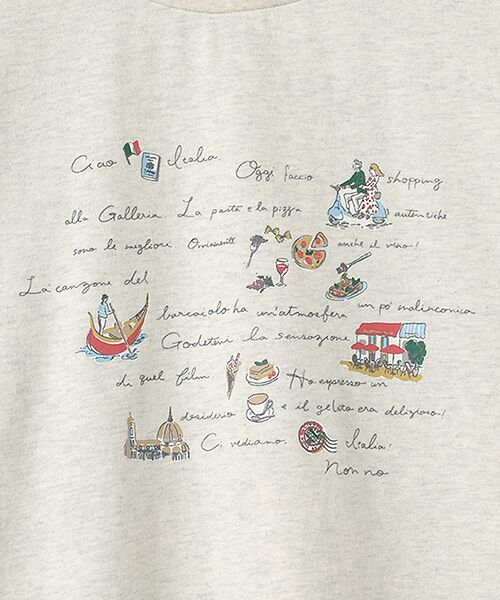 Ciao Italia. Oggi faccio shopping
alla Galleria La pasta e la pizza autentiche
sono le migliori Ovviamente anche il vino!
La canzone del
barcaiolo ha un'atmosfera un po' malinconica
Godetevi la sensazione
di quel film Ho espresso un
desiderio e il gelato era delizioso!
Ci vediamo, Italia!
Non no